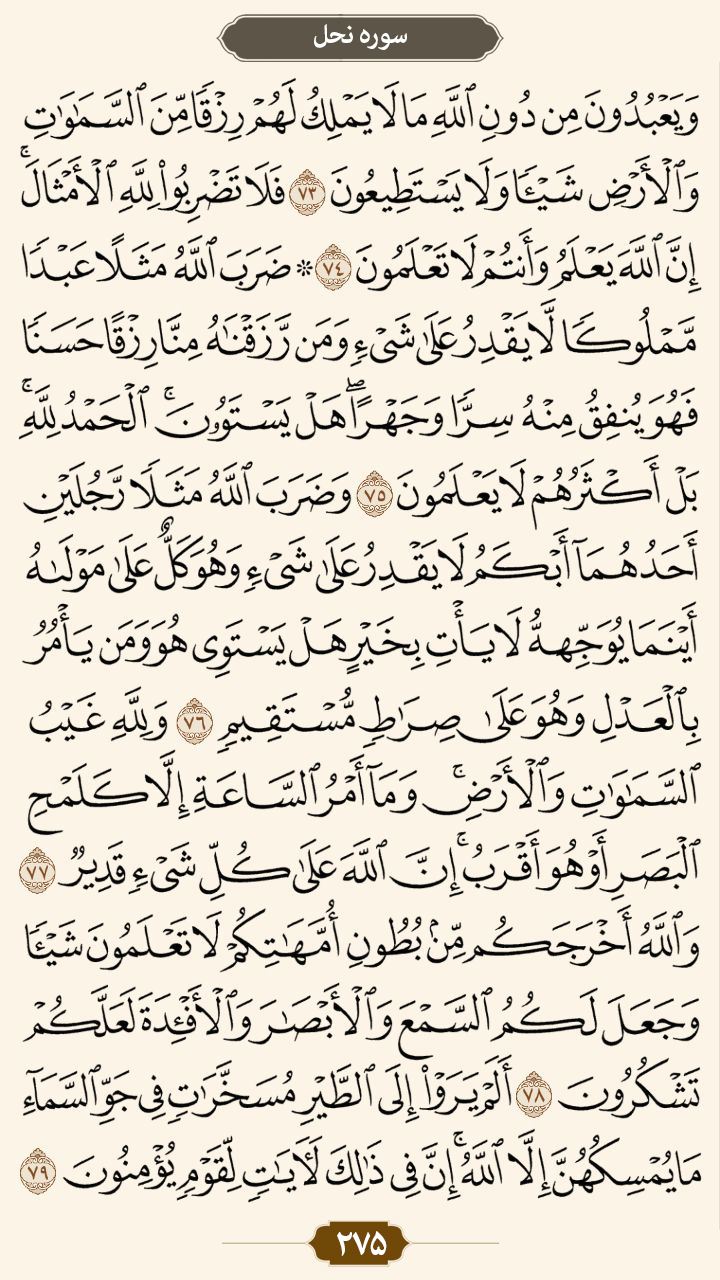 سوره نحل
وَيَعۡبُدُونَ مِن دُونِ ٱللَّهِ مَا لَا يَمۡلِكُ لَهُمۡ رِزۡقٗا مِّنَ ٱلسَّمَٰوَٰتِ
وَٱلۡأَرۡضِ شَيۡـٔٗا وَلَا يَسۡتَطِيعُونَ ٧٣ فَلَا تَضۡرِبُواْ لِلَّهِ ٱلۡأَمۡثَالَۚ
إِنَّ ٱللَّهَ يَعۡلَمُ وَأَنتُمۡ لَا تَعۡلَمُونَ ٧٤ ۞ ضَرَبَ ٱللَّهُ مَثَلًا عَبۡدٗا
مَّمۡلُوكٗا لَّا يَقۡدِرُ عَلَىٰ شَيۡءٖ وَمَن رَّزَقۡنَٰهُ مِنَّا رِزۡقًا حَسَنٗا
فَهُوَ يُنفِقُ مِنۡهُ سِرّٗا وَجَهۡرًاۖ هَلۡ يَسۡتَوُۥنَۚ ٱلۡحَمۡدُ لِلَّهِۚ
بَلۡ أَكۡثَرُهُمۡ لَا يَعۡلَمُونَ ٧٥ وَضَرَبَ ٱللَّهُ مَثَلٗا رَّجُلَيۡنِ
أَحَدُهُمَآ أَبۡكَمُ لَا يَقۡدِرُ عَلَىٰ شَيۡءٖ وَهُوَ كَلٌّ عَلَىٰ مَوۡلَىٰهُ
أَيۡنَمَا يُوَجِّههُّ لَا يَأۡتِ بِخَيۡرٍ هَلۡ يَسۡتَوِي هُوَ وَمَن يَأۡمُرُ
بِٱلۡعَدۡلِ وَهُوَ عَلَىٰ صِرَٰطٖ مُّسۡتَقِيمٖ ٧٦ وَلِلَّهِ غَيۡبُ
ٱلسَّمَٰوَٰتِ وَٱلۡأَرۡضِۚ وَمَآ أَمۡرُ ٱلسَّاعَةِ إِلَّا كَلَمۡحِ
ٱلۡبَصَرِ أَوۡ هُوَ أَقۡرَبُۚ إِنَّ ٱللَّهَ عَلَىٰ كُلِّ شَيۡءٖ قَدِيرٞ ٧٧
وَٱللَّهُ أَخۡرَجَكُم مِّنۢ بُطُونِ أُمَّهَٰتِكُمۡ لَا تَعۡلَمُونَ شَيۡـٔٗا
وَجَعَلَ لَكُمُ ٱلسَّمۡعَ وَٱلۡأَبۡصَٰرَ وَٱلۡأَفۡـِٔدَةَ لَعَلَّكُمۡ
تَشۡكُرُونَ ٧٨ أَلَمۡ يَرَوۡاْ إِلَى ٱلطَّيۡرِ مُسَخَّرَٰتٖ فِي جَوِّ ٱلسَّمَآءِ
مَا يُمۡسِكُهُنَّ إِلَّا ٱللَّهُۚ إِنَّ فِي ذَٰلِكَ لَأٓيَٰتٖ لِّقَوۡمٖ يُؤۡمِنُونَ ٧٩
۲۷۵